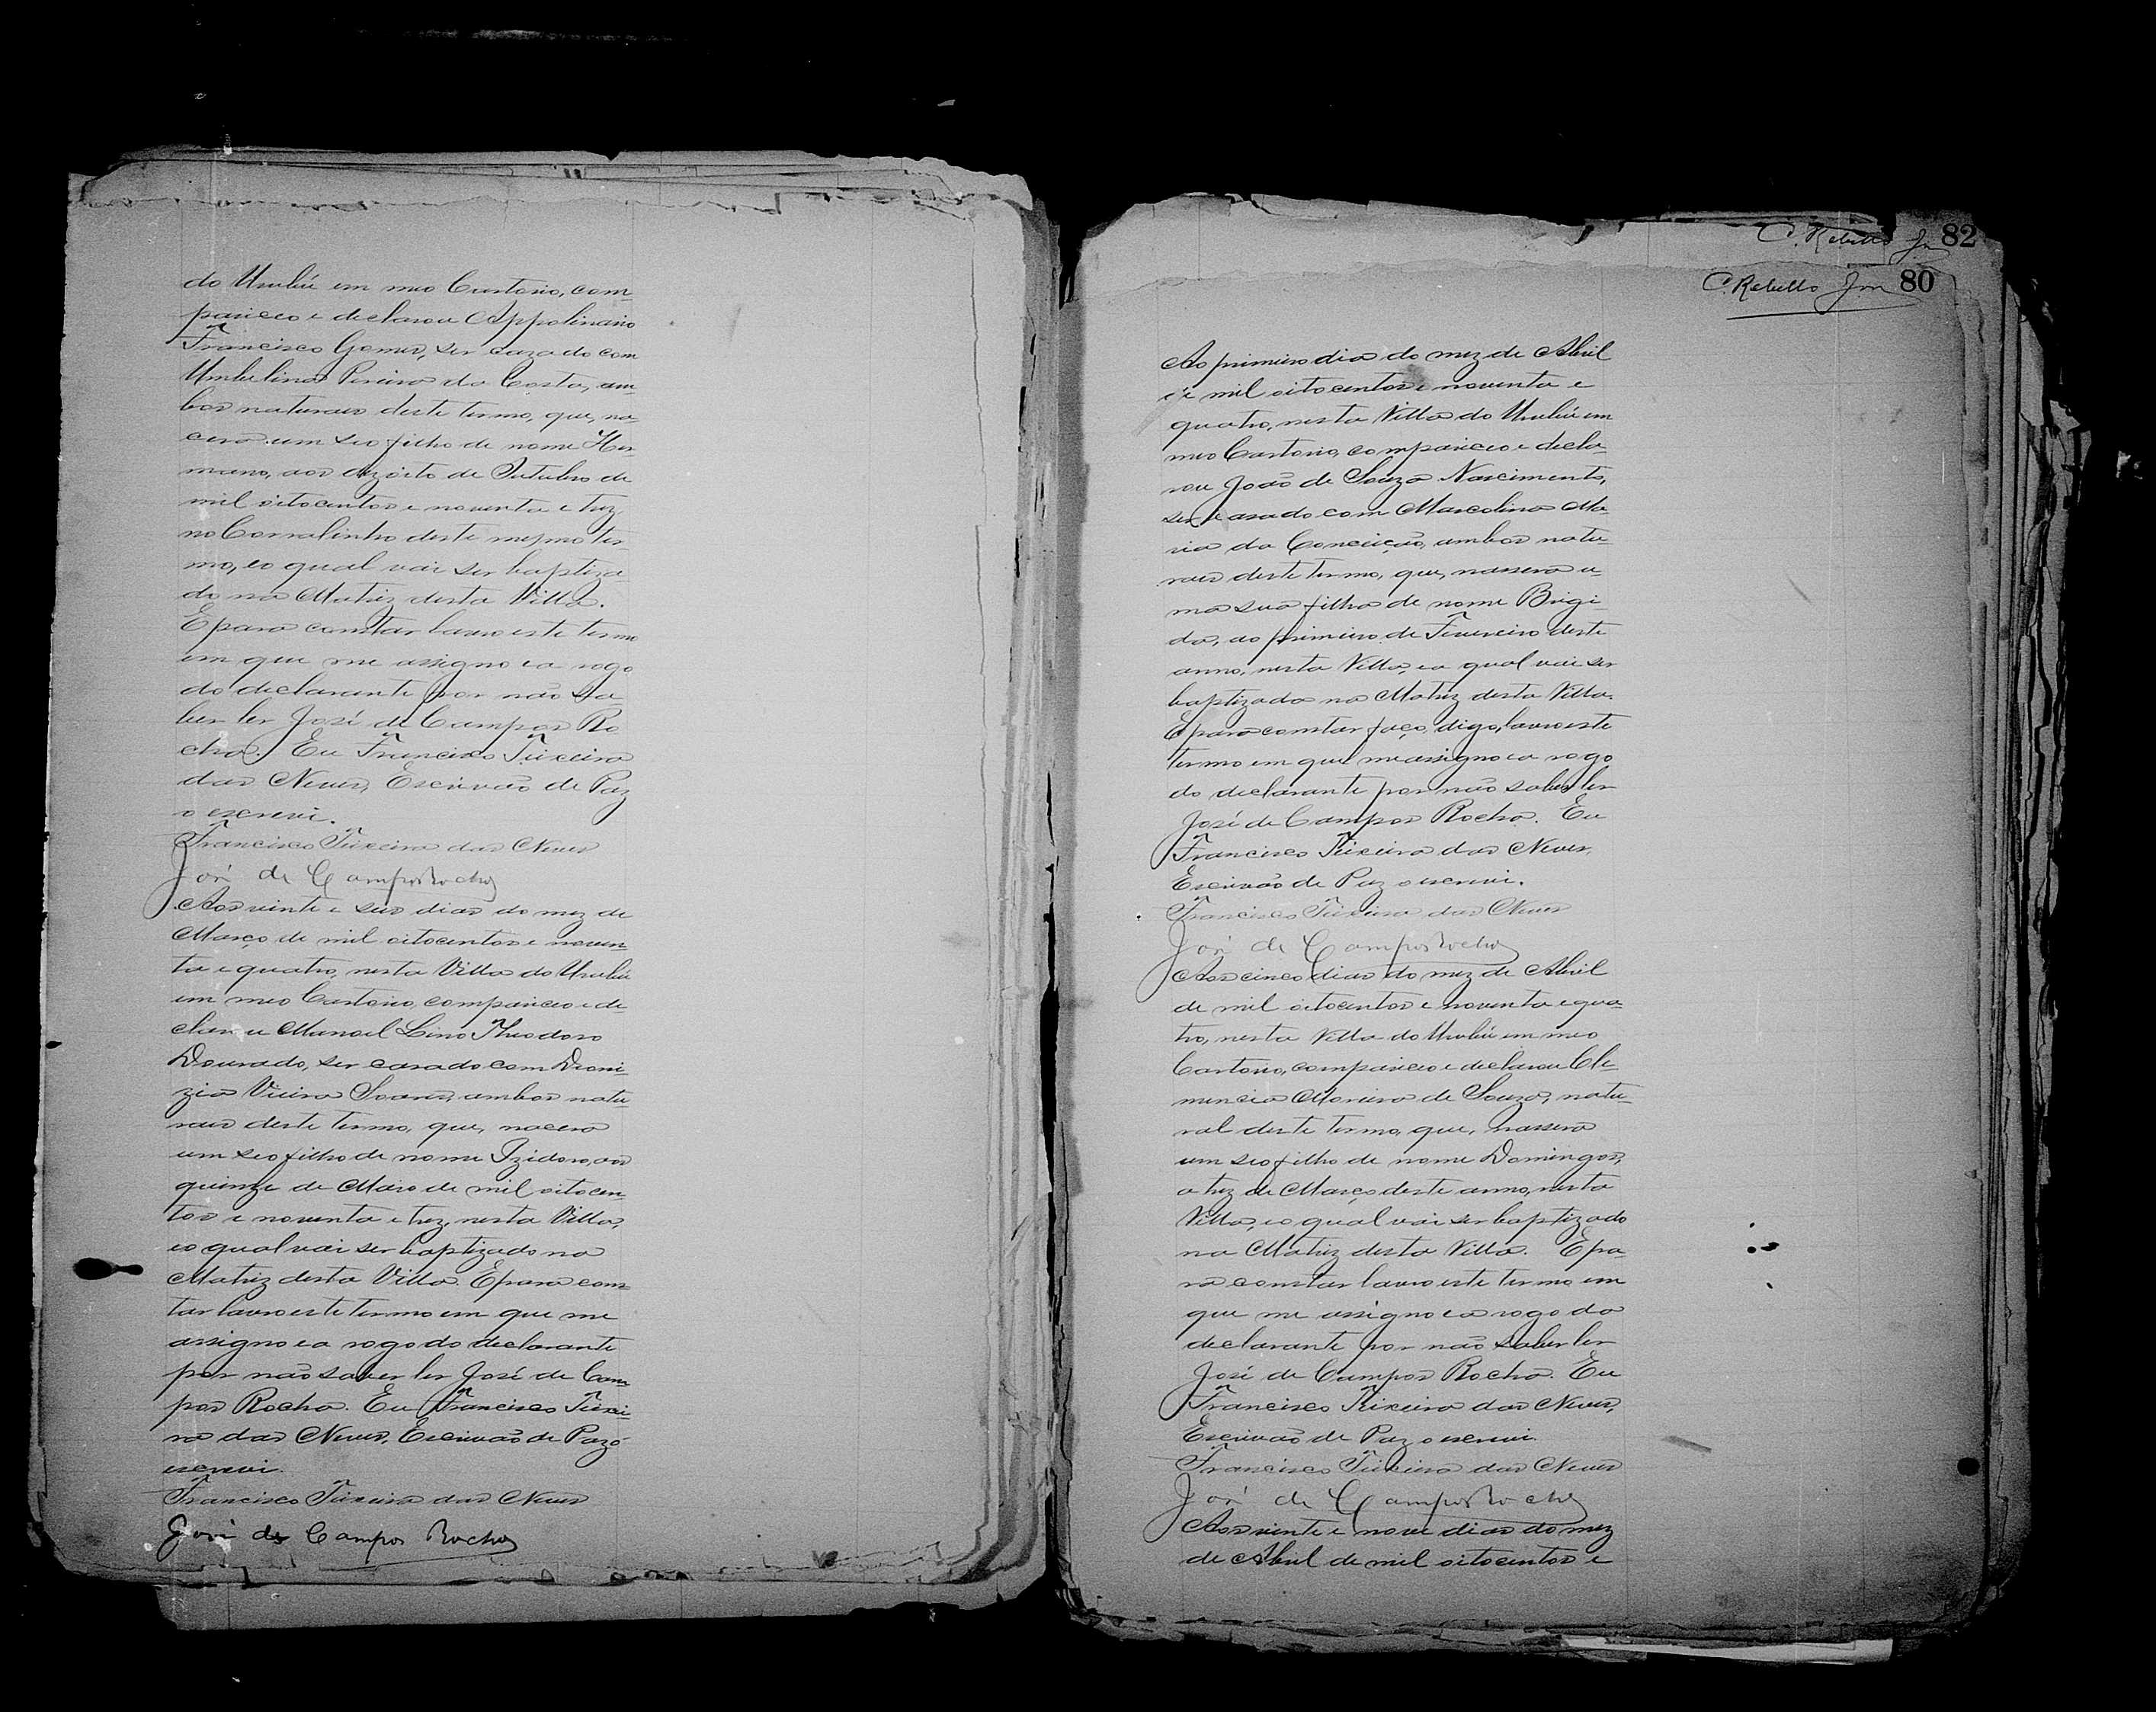 do Urubú em meo Cartorio, com-
pareceo e declarou Appolinario
Francisco Gomes, ser cazado com
Umbelina Pereira da Costa, am-
bos naturaes deste termo, que, na-
cera um seo filho de nome Her-
mano, aos dezoito de Outubro de
mil oitocentos e noventa e trez
no Corralinho deste mesmo ter-
mo, e o qual vai ser baptiza-
do na Matriz desta Villa.
E para constar lavro este termo
em que me assigno e a rogo
do declarante por não sa-
ber ler José de Campos Ro-
cha. Eu Francisco Teixeira
das Neves, Escrivão de Paz
o escrevi.
Francisco Teixeira das Neves
José de Campos Rocha
Aos vinte e seis dias do mez de
Março de mil oitocentos e noven-
ta e quatro, nesta Villa do Urubú
em meo Cartorio, compareceo e de-
clarou Manoel Lino Theodoro
Dourado, ser casado com Dioni-
zia Vieira Soares, ambos natu-
raes deste termo, que, nacera
um seo filho de nome Izidoro, aos
quinze de Maio de mil oitocen-
tos e noventa e trez, nesta Villa,
e o qual vai ser baptizado na
Matriz desta Villa. E para cons-
tar lavro este termo em que me
assigno e a rogo do declarante
por não saber ler José de Cam-
pos Rocha. Eu Francisco Teixei-
ra das Neves, Escrivão de Paz o
escrevi.
Francisco Teixeira das Neves
José de Campos Rocha
C. Rebello Jor 82
C. Rebello Jor 80
Ao primeiro dia do mez de Abril
de mil oitocentos e noventa e
quatro, nesta Villa do Urubú em
meo Cartorio, compareceo e decla-
rou João de Souza Nascimento,
ser casado com Marcolina Ma-
ria da Conceição, ambos natu-
raes deste termo, que, nassera u-
ma sua filha de nome Brigi-
da, ao primeiro de Fevereiro deste
anno, nesta Villa, e a qual vai ser
baptizada na Matriz desta Villa.
E para constar faço, digo, lavro este
termo em que me assigno e a rogo
do declarante por não saber ler
José de Campos Rocha. Eu
Francisco Teixeira das Neves,
Escrivão de Paz o escrevi.
Francisco Teixeira das Neves
José de Campos Rocha
Aos cinco dias do mez de Abril
de mil oitocentos e noventa e qua-
tro, nesta Villa do Urubú em meo
Cartorio, compareceo e declarou Cle-
mencia Moreira de Souza, natu-
ral deste termo, que, nassera
um seo filho de nome Domingos,
a trez de Março deste anno, nesta
Villa, e o qual vai ser baptizado
na Matriz desta Villa. E pa-
ra constar lavro este termo em
que me assigno e a rogo da
declarante por não saber ler
José de Campos Rocha. Eu
Francisco Teixeira das Neves,
Escrivão de Paz o escrevi
Francisco Teixeira das Neves
José de Campos Rocha
Aos vinte e nove dias do mez
de Abril de mil oitocentos e